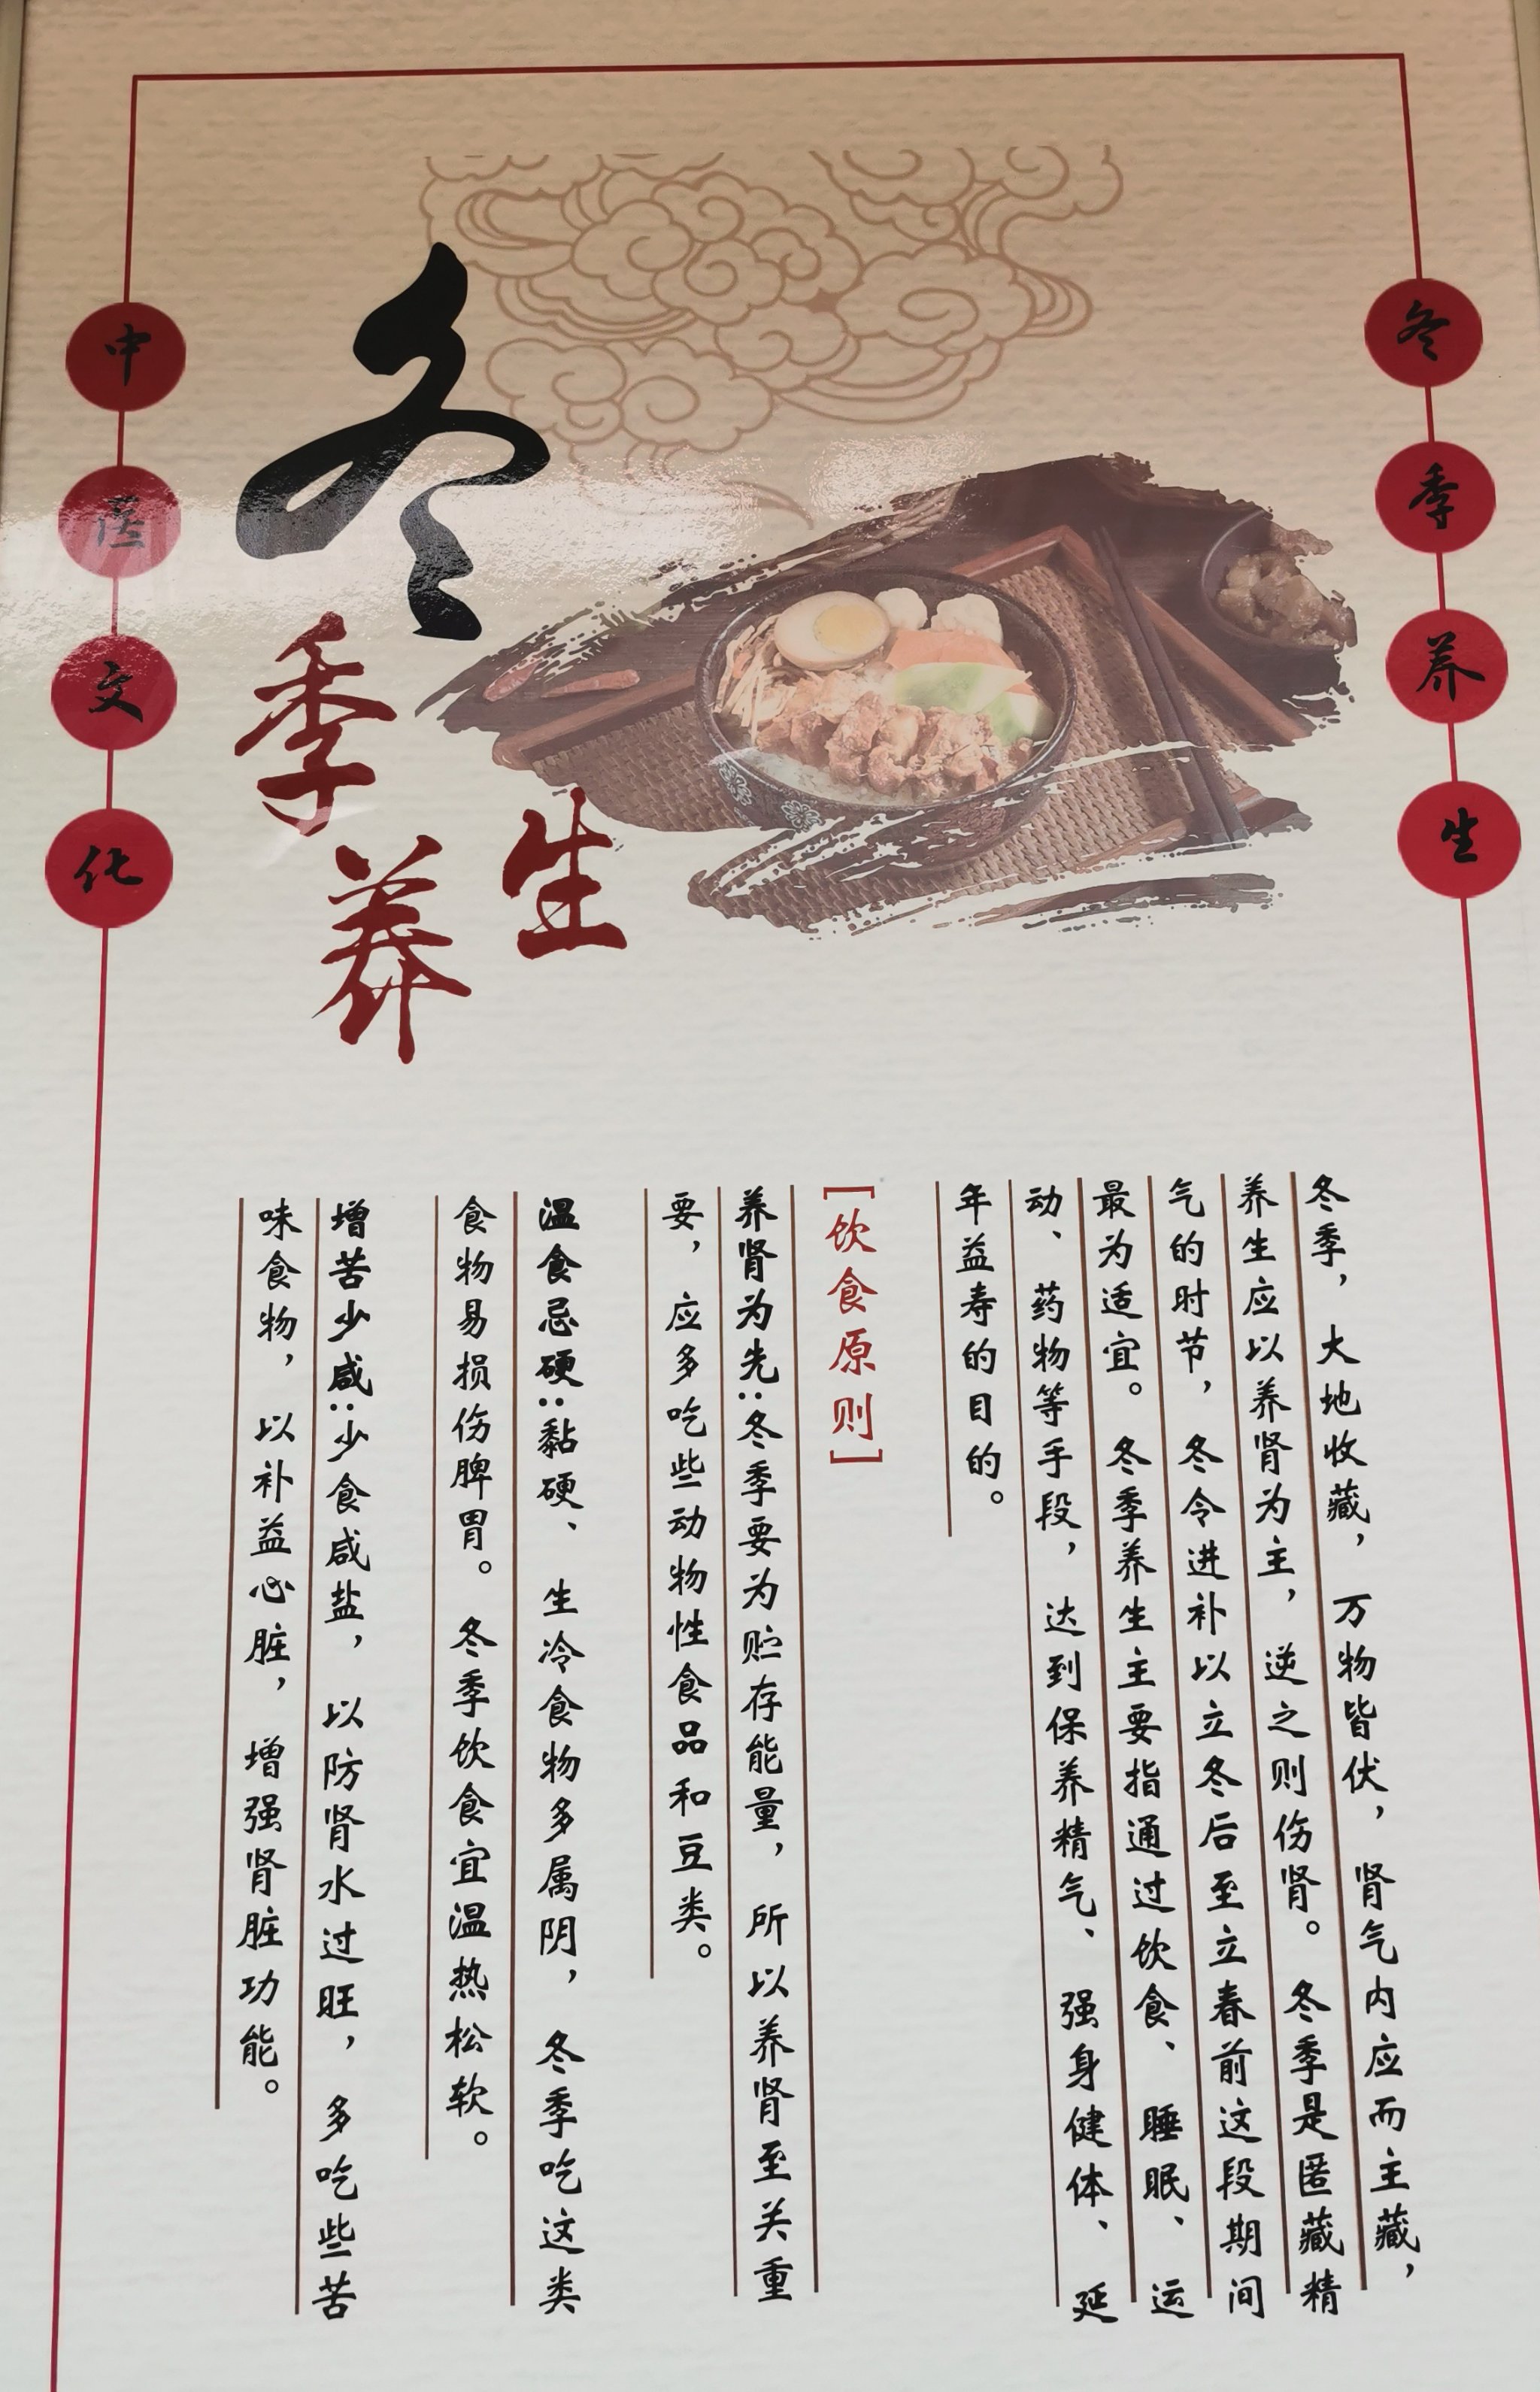 冬季养生
中医文化
冬季养生
冬季，大地收藏，万物皆伏，肾气内应而主藏，
养生应以养肾为主，逆之则伤肾。冬季是匿藏精
气的时节，冬令进补以立冬后至立春前这段期间
最为适宜。冬季养生主要指通过饮食、睡眠、运
动、药物等手段，达到保养精气、强身健体、延
年益寿的目的。
[饮食原则]
养肾为先:冬季要为贮存能量，所以养肾至关重
要，应多吃些动物性食品和豆类。
温食忌硬:黏硬、生冷食物多属阴，冬季吃这类
食物易损伤脾胃。冬季饮食宜温热松软。
增苦少咸:少食咸盐，以防肾水过旺，多吃些苦
味食物，以补益心脏，增强肾脏功能。